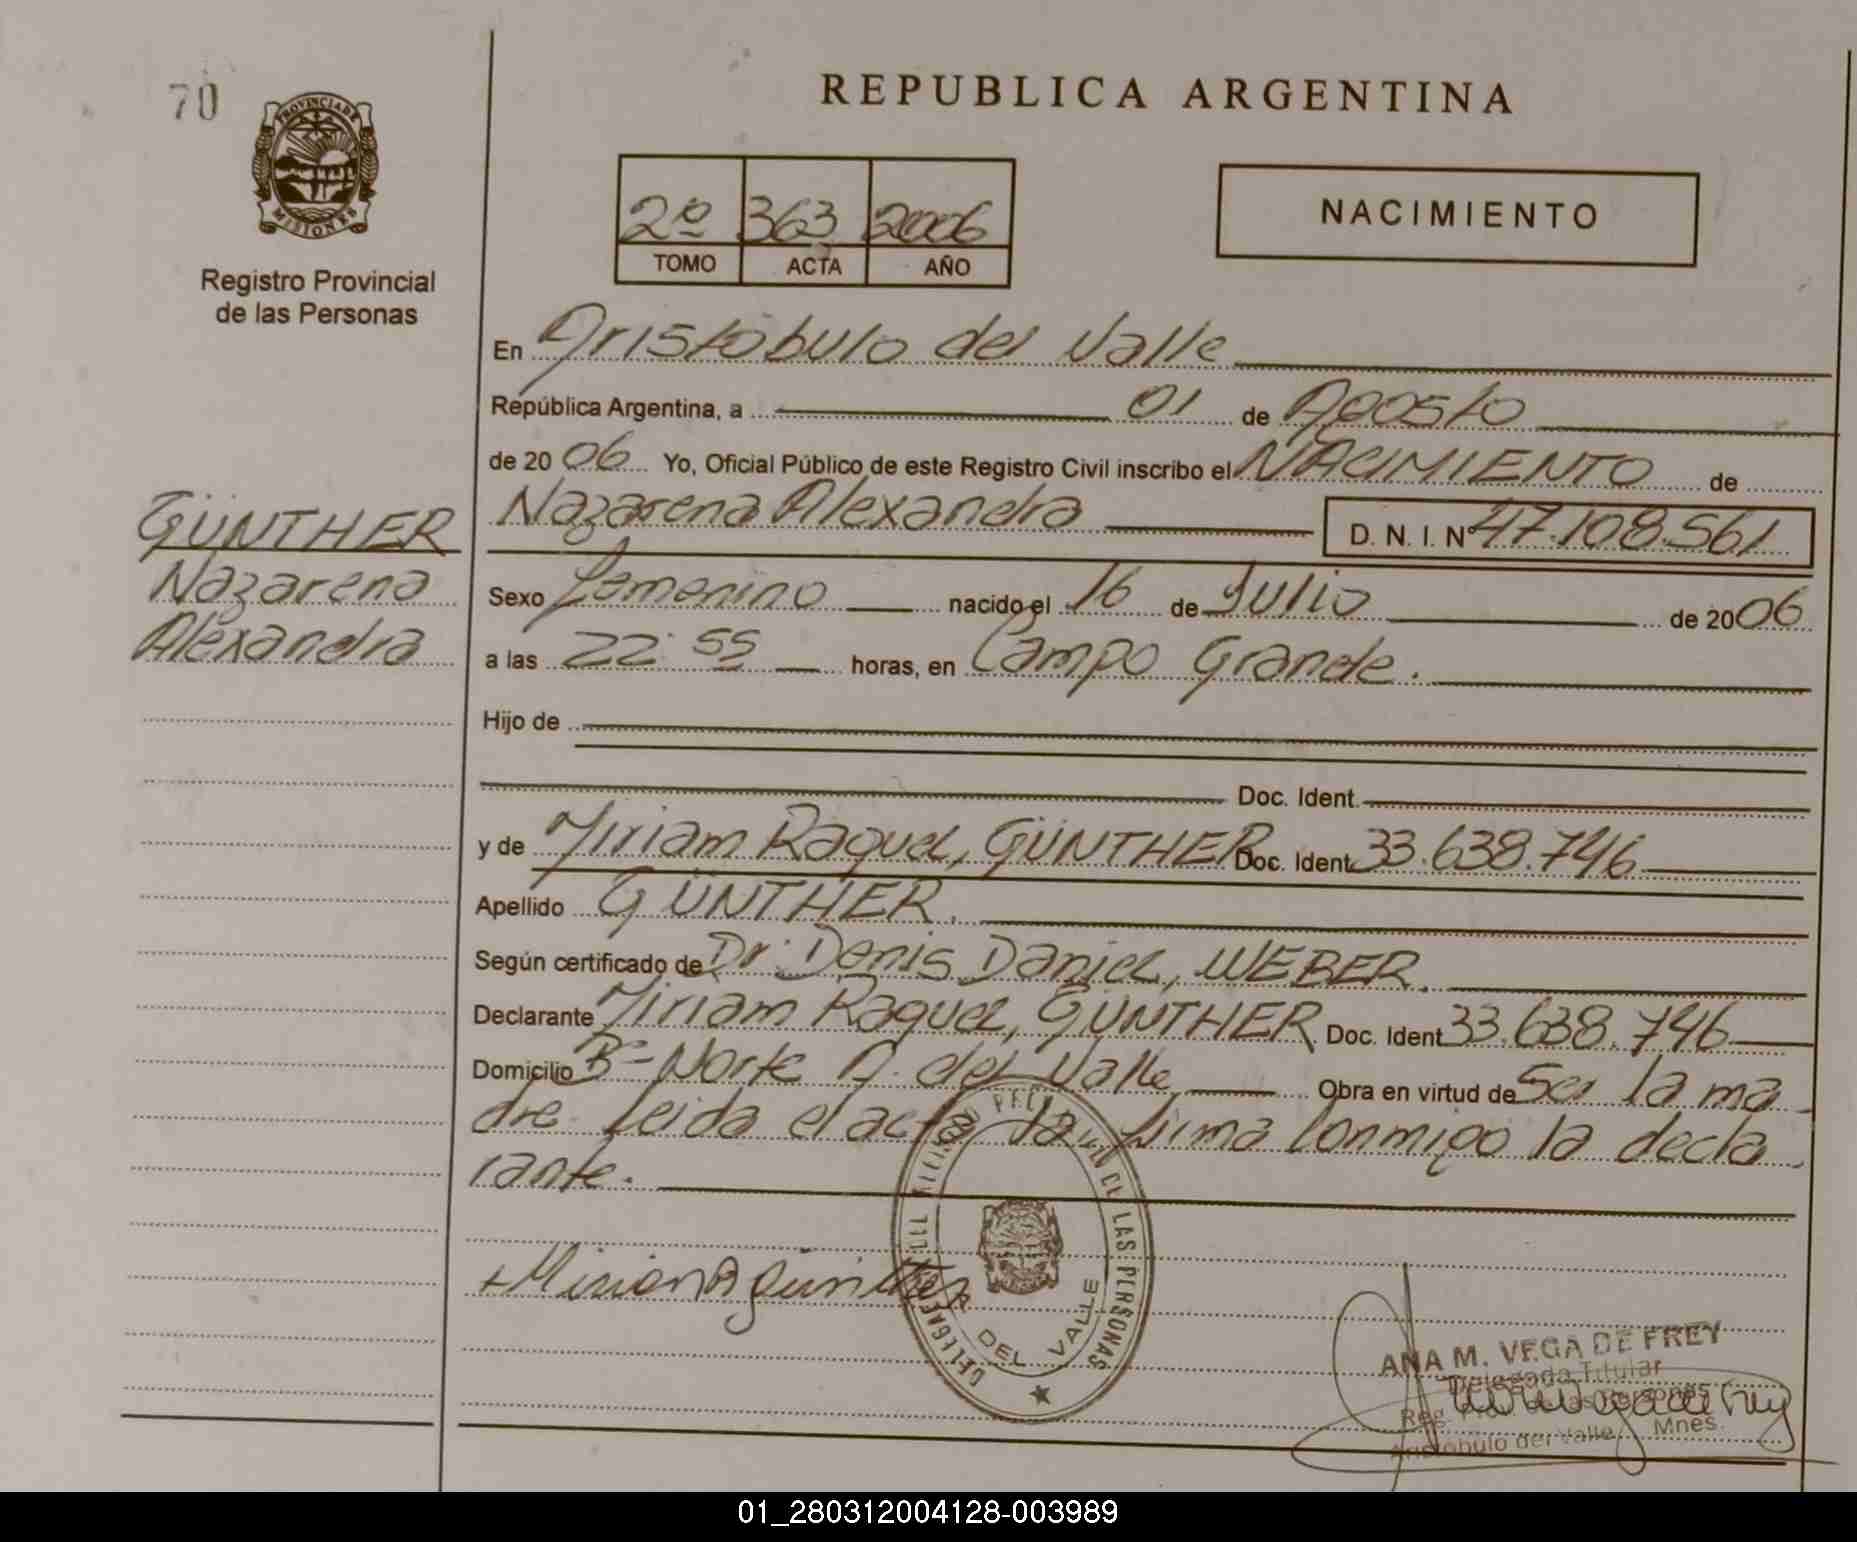 70
PROVINCIA DE
MISIONES
Registro Provincial
de las Personas
REPUBLICA ARGENTINA
2º 363 2006
TOMO ACTA AÑO
NACIMIENTO
En Aristobulo del Valle
República Argentina, a 01 de Agosto
de 20 06 Yo, Oficial Público de este Registro Civil inscribo el NACIMIENTO de
GÜNTHER
Nazarena
Alexandra
Nazarena Alexandra D. N. I. Nº 47.108.561
Sexo Femenino nacido el 16 de Julio de 20 06
a las 22:55 horas, en Campo Grande.
Hijo de
Doc. Ident.
y de Miriam Raquel, GÜNTHER Doc. Ident. 33.638.746
Apellido GÜNTHER.
Según certificado de Dr. Denis Daniel, WEBER.
Declarante Miriam Raquel, GÜNTHER. Doc. Ident 33.638.746
Domicilio Bº Norte A. del Valle, Obra en virtud de Ser la ma
dre. Leida el acta la firma conmigo la decla
rante.
DE LAS PERSONAS
DEL VALLE
ANA M. VEGA DE FREY
Delegada Titular
Reg. Prov. de las Personas
Aristobulo del Valle Mnes.
01_280312004128-003989